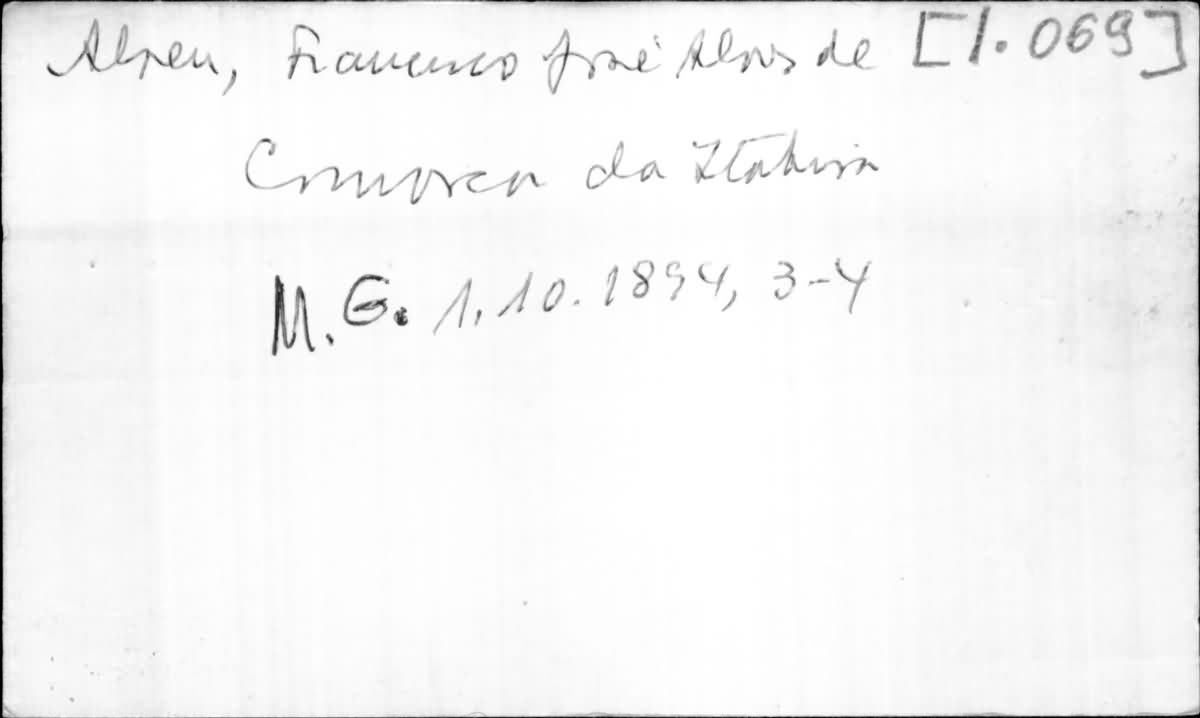 Abreu, Francisco José Alves de [1.069]
Comarca da Itabira
M.G. 1.10.1894, 3-4